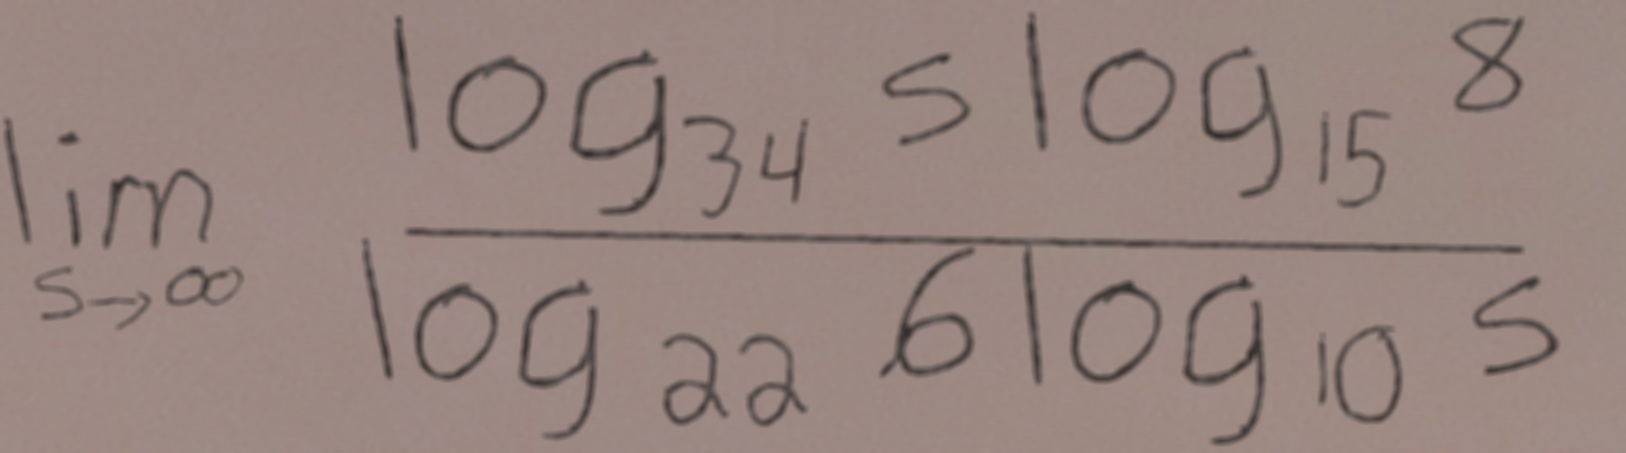 \lim_{s \to \infty} \frac{\log_{34} s \log_{15} 8}{\log_{22} 6 \log_{10} s}